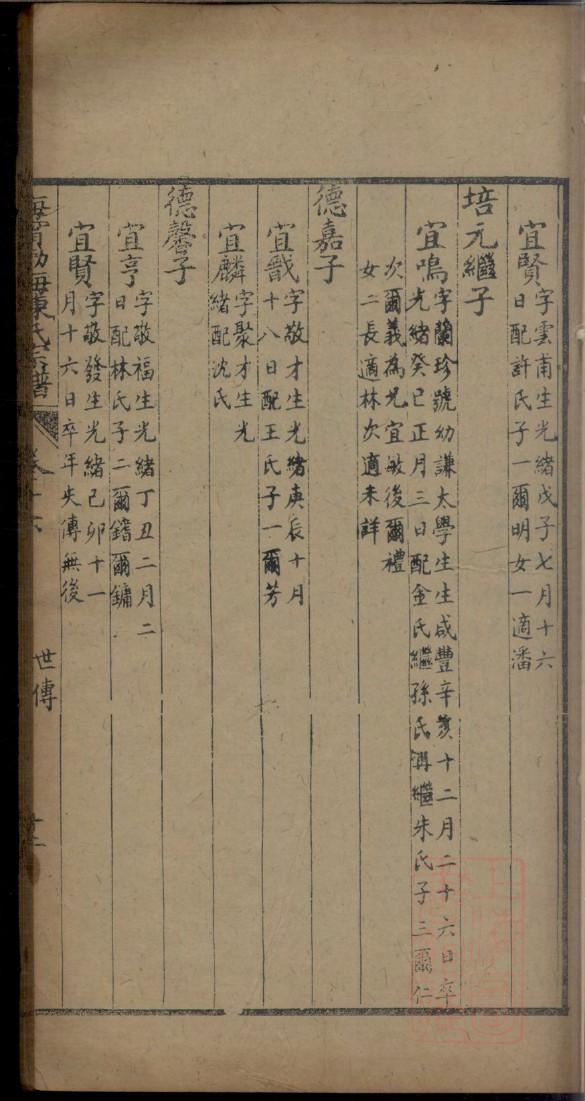 宜賢字雲甫生光緒戊子七月十六
日配許氏子一爾明女一適潘
培元繼子
宜鳴字蘭珍號幼謙太學生生咸豐辛亥十二月二十六日卒
光緒癸巳正月三日配金氏繼孫氏再繼朱氏子三爾仁
次爾義為兄宜敏後爾禮
女二長適林次適未詳
德嘉子
宜戩字敬才生光緒庚辰十月
十八日配王氏子一爾芳
宜麟字聚才生光
緒配沈氏
德馨子
宜亨字敬福生光緒丁丑二月二
日配林氏子二爾鍺爾鏞
宜賢字敬發生光緒己卯十一
月十六日卒年失傳無後
海陳氏宗譜
卷十六
世傳